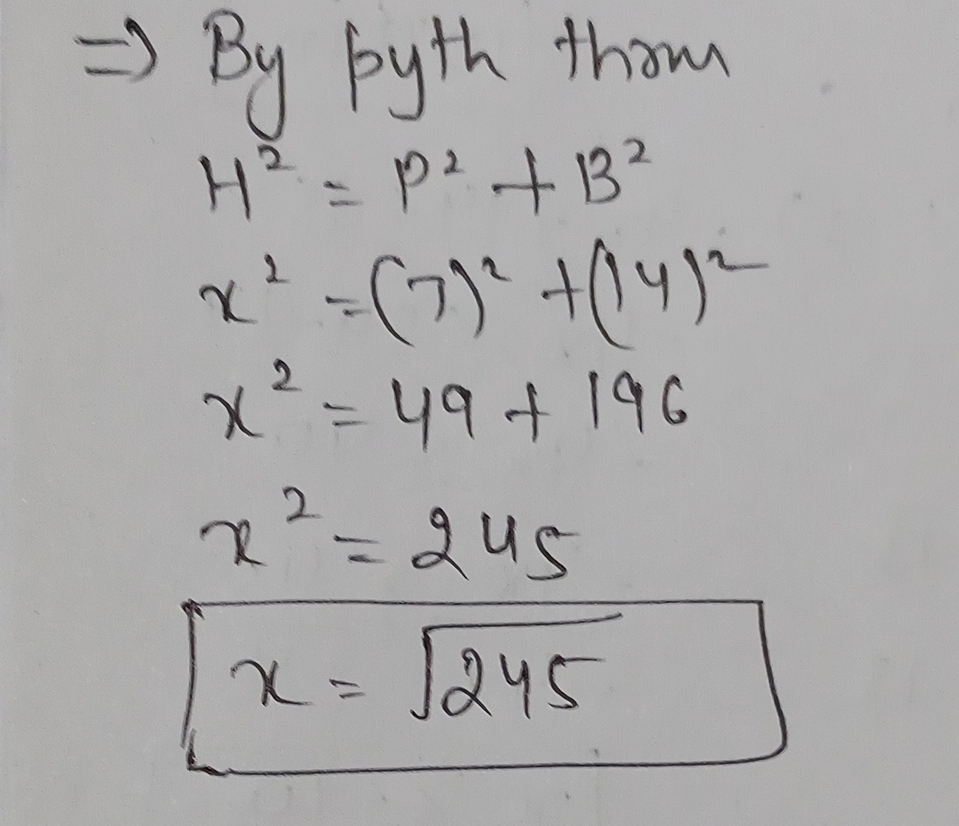 ⇒ By pyth thom
H² = P² + B²
x² = (7)² + (14)²
x² = 49 + 196
x² = 245
x = √245